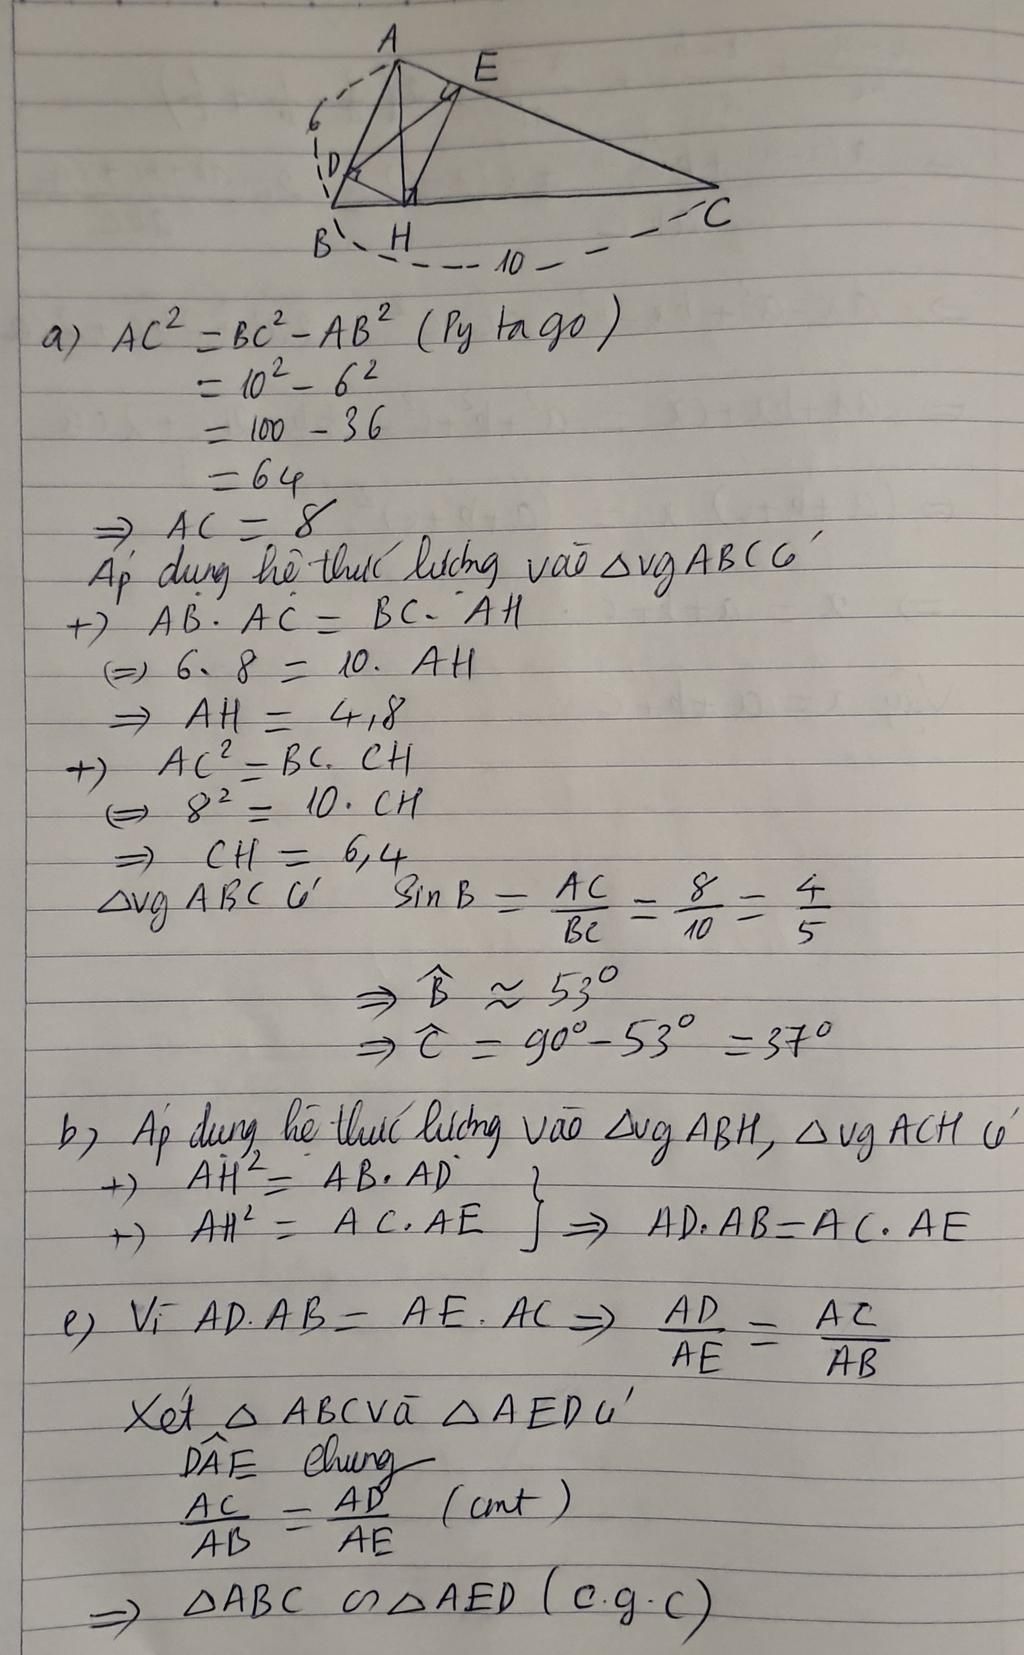 A
E
6
D
B
H
C
10
a) AC² = BC² - AB² (Py ta go)
= 10² - 6²
= 100 - 36
= 64
⇒ AC = 8
Áp dụng hệ thức lượng vào △vg ABC có
+) AB. AC = BC. AH
(=) 6. 8 = 10. AH
⇒ AH = 4,8
+) AC² = BC. CH
(=) 8² = 10. CH
⇒ CH = 6,4
△vg ABC có sin B = AC/BC = 8/10 = 4/5
⇒ B̂ ≈ 53°
⇒ Ĉ = 90° - 53° = 37°
b) Áp dụng hệ thức lượng vào △vg ABH, △vg ACH có
+) AH² = AB. AD
+) AH² = AC. AE } ⇒ AD. AB = AC. AE
c) Vì AD. AB = AE. AC ⇒ AD/AE = AC/AB
Xét △ ABC và △ AED có
DÂE chung
AC/AB = AD/AE (cmt)
⇒ △ABC ∽ △AED (c.g.c)